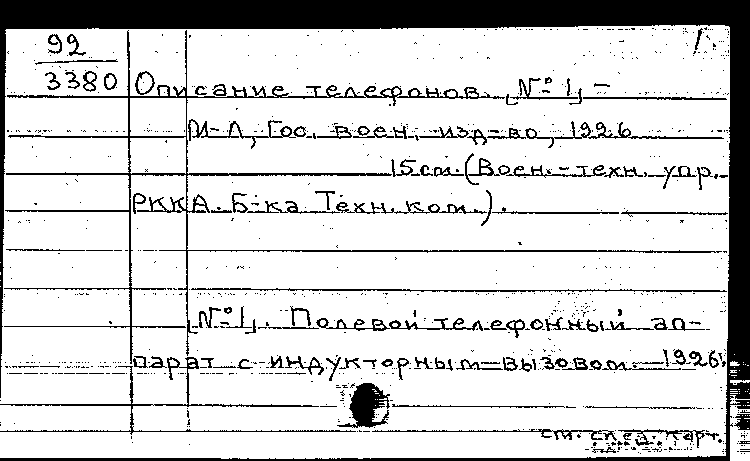 92
3380
1.
Описание телефонов. [№ 1] –
М-Л, Гос. воен. изд-во, 1926
15 cm. (Воен.-техн. упр.
РККА. Б-ка Техн. ком.).
[№ 1]. Полевой телефонный ап-
парат с индукторным вызовом. 1926.
см. след. карт.